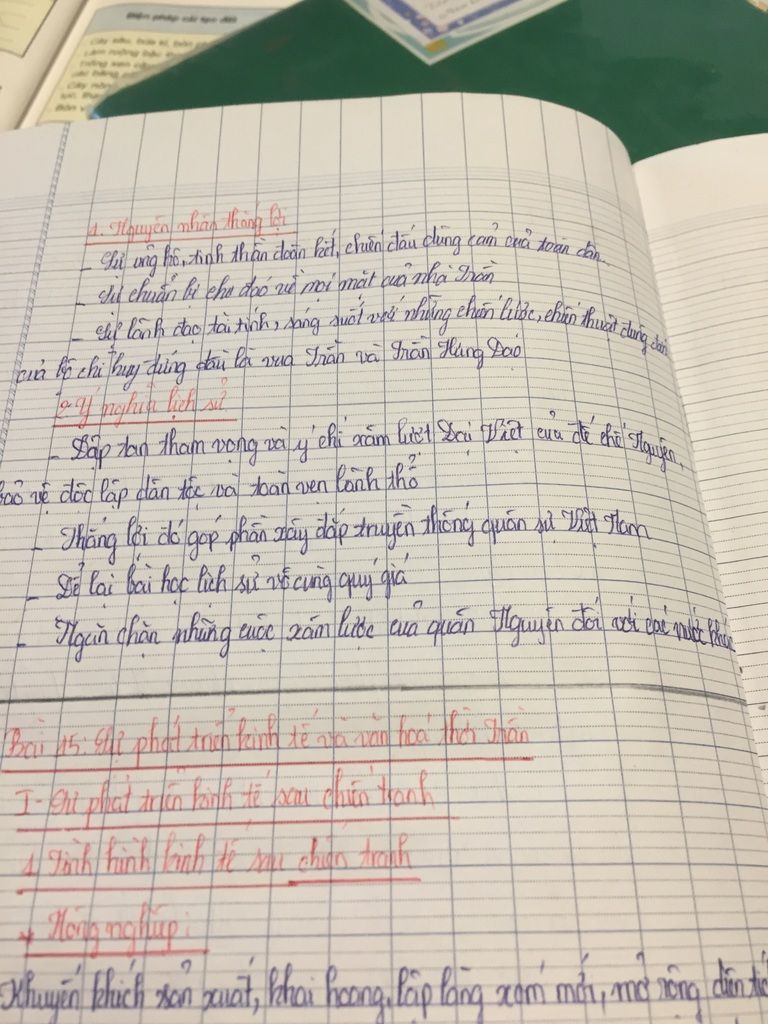 Biện pháp cải tạo đất
1. Nguyên nhân thắng lợi
- Sự ủng hộ, tinh thần đoàn kết, chiến đấu dũng cảm của toàn dân.
- Sự chuẩn bị chu đáo về mọi mặt của nhà Trần
- Sự lãnh đạo tài tình, sáng suốt với những chiến lược, chiến thuật đúng đắn
của bộ chỉ huy đứng đầu là vua Trần và Trần Hưng Đạo
2. Ý nghĩa lịch sử
- Đập tan tham vọng và ý chí xâm lược Đại Việt của đế chế Nguyên,
bảo vệ độc lập dân tộc và toàn vẹn lãnh thổ
- Thắng lợi đó góp phần xây đắp truyền thống quân sự Việt Nam
- Để lại bài học lịch sử vô cùng quý giá
- Ngăn chặn những cuộc xâm lược của quân Nguyên đối với các nước khác
Bài 15: Sự phát triển kinh tế và văn hoá thời Trần
I - Sự phát triển kinh tế sau chiến tranh
1 Tình hình kinh tế sau chiến tranh
* Nông nghiệp:
Khuyến khích sản xuất, khai hoang, lập làng xóm mới, mở rộng diện tíc